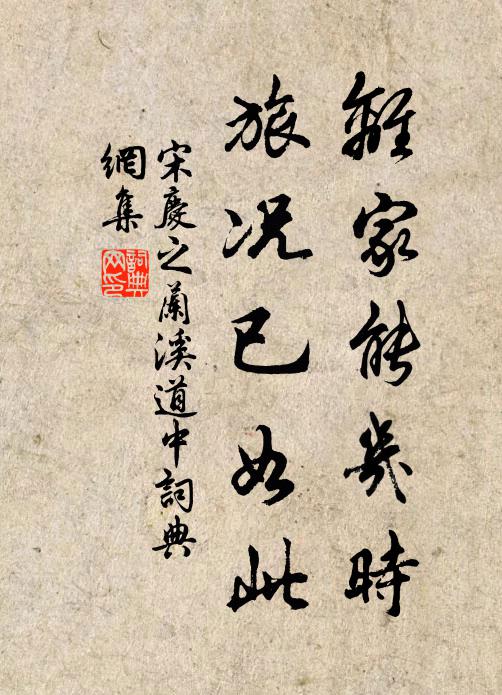 離家能幾時
旅況已如此
宋慶之蘭溪道中詞典
網集
詞典
网印